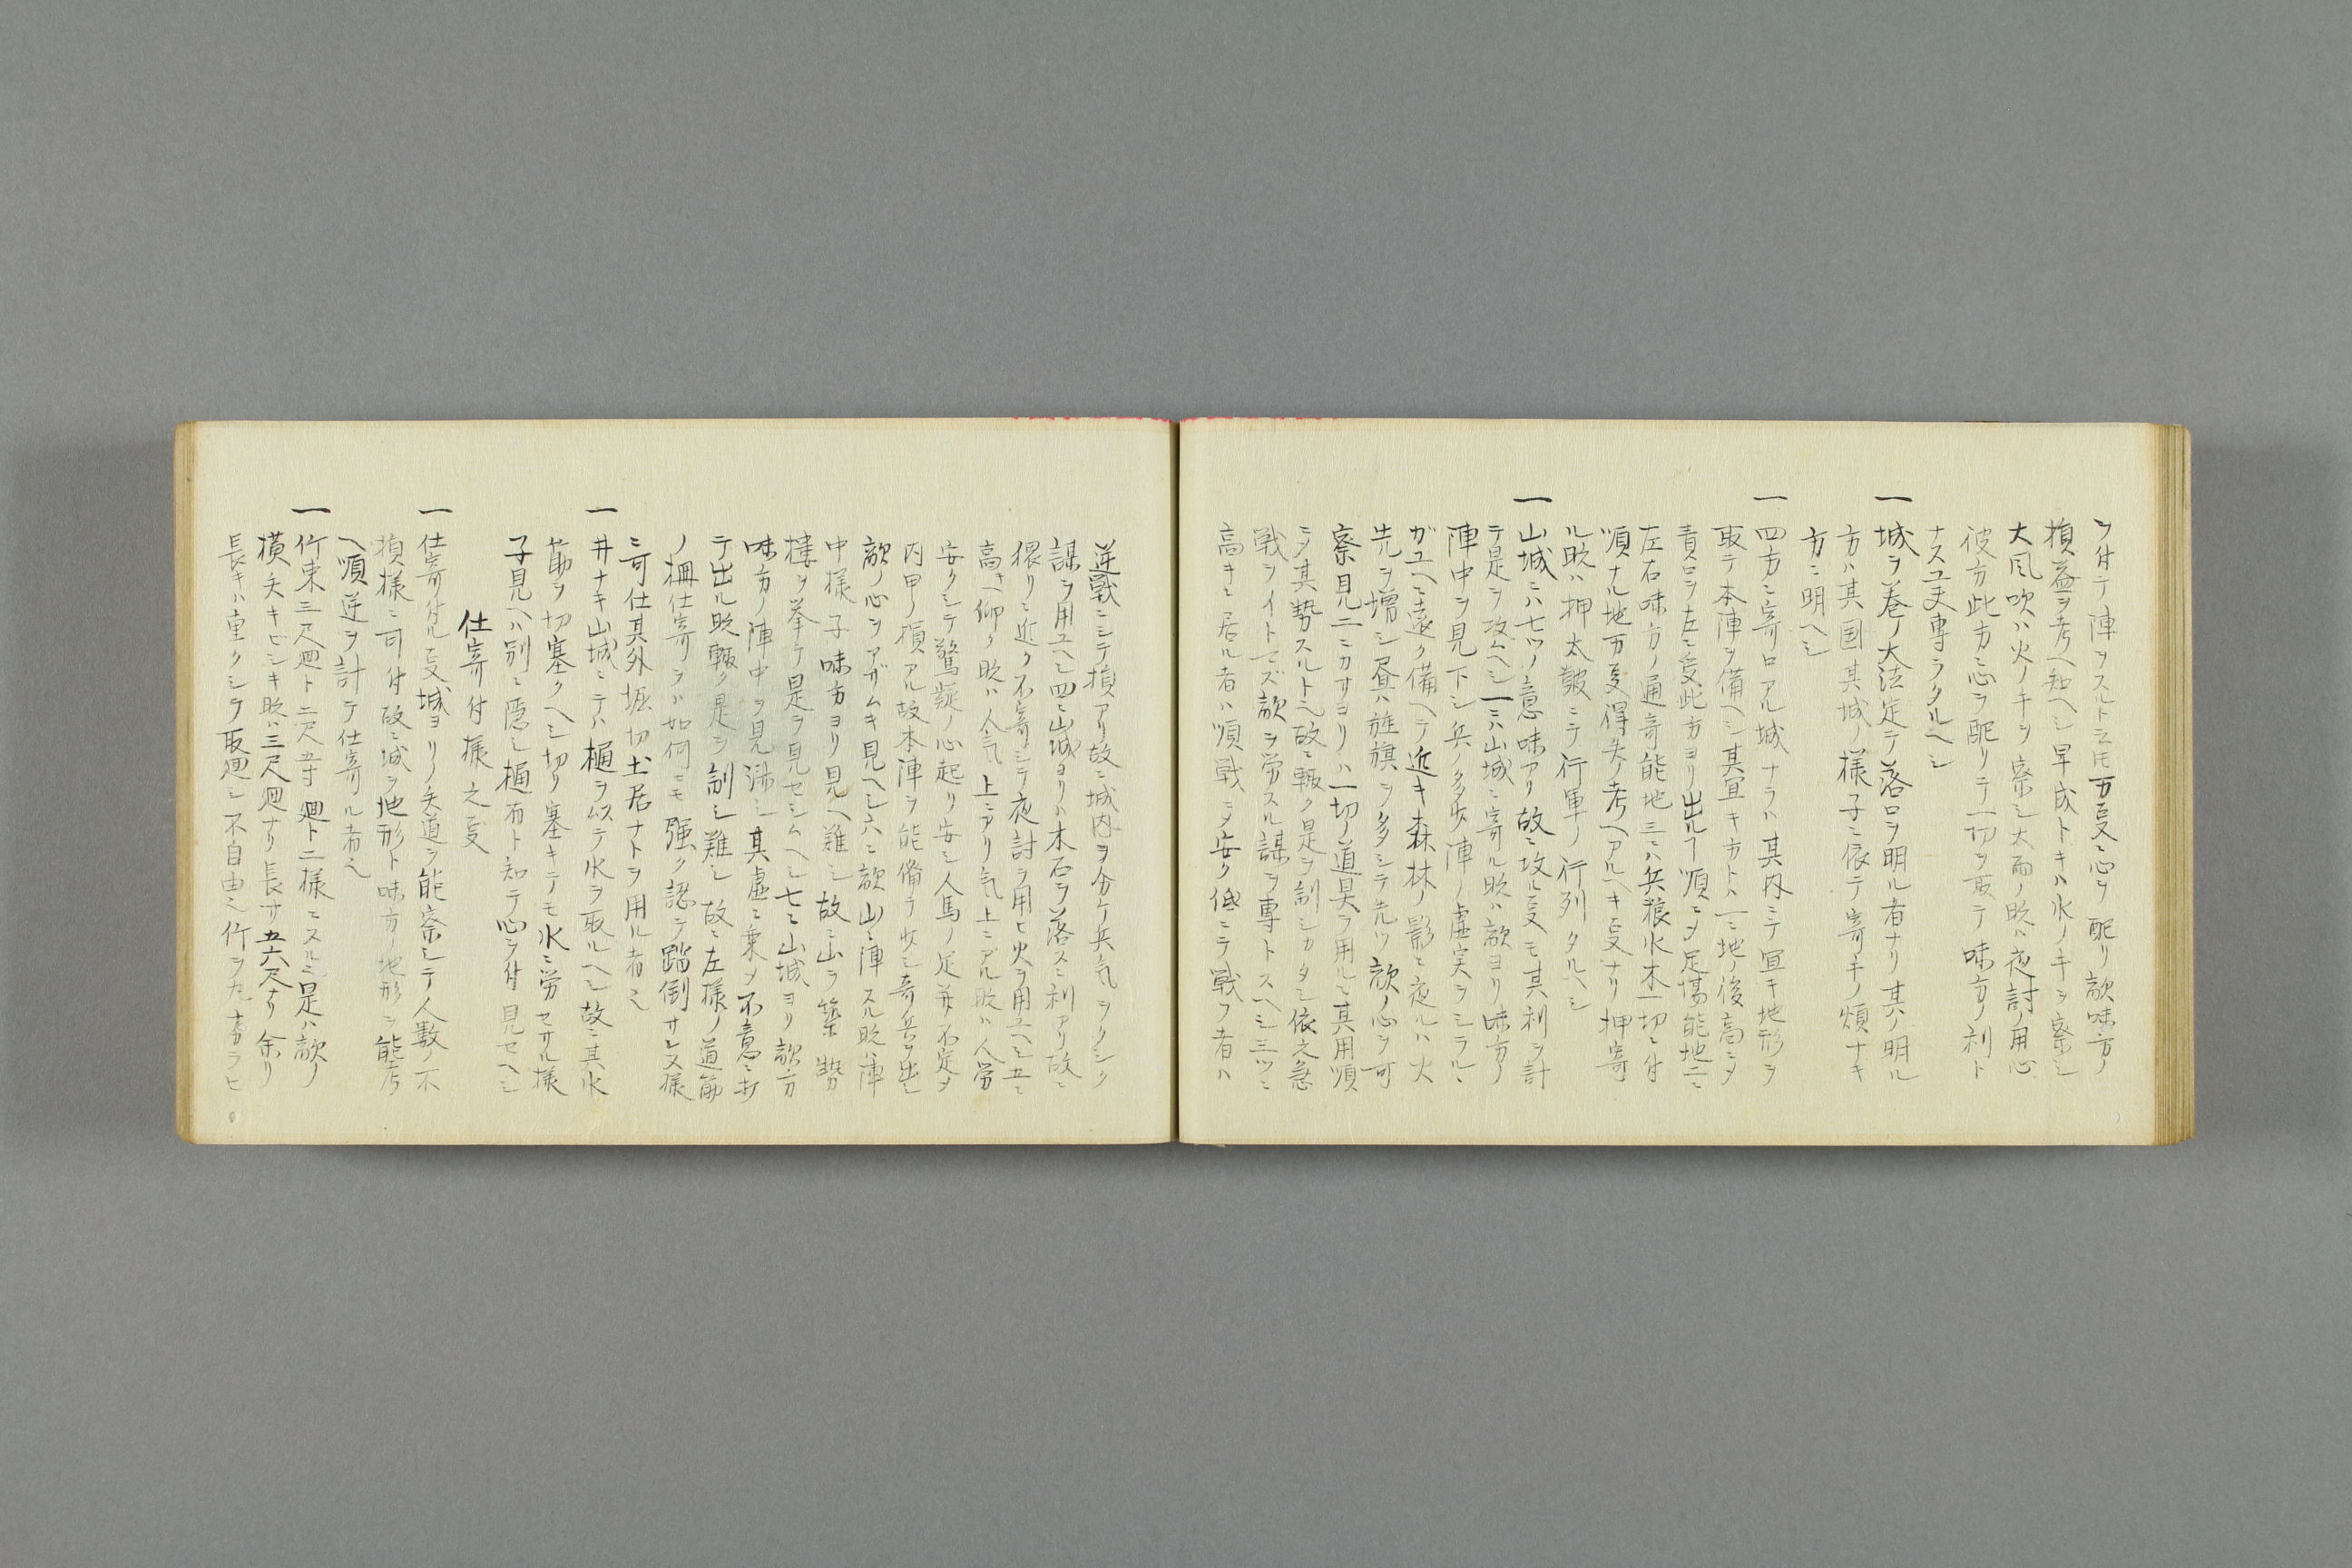 ヲ付テ陣ヲスルト云モ万叓ニ心ヲ配リ敵味方ノ
損益ヲ考ヘ知ヘシ早成トキハ水ノ手ヲ察シ
大風吹ハ火ノ手ヲ察シ大雨ノ時ハ夜討ノ用心
彼方此方ニ心ヲ配リテ一切ヲ以テ味方ノ利ト
ナス工夫専ラタルヘシ
一城ヲ巻ノ大法定テ落口ヲ明ル者ナリ其ノ明ル
方ハ其国其城ノ様子ニ依テ寄手ノ煩ナキ
方ニ明ヘシ
一四方ニ寄口アル城ナラハ其内ニテ冝キ地形ヲ
取テ本陣ヲ備ヘシ其冝キ方トハ一ニ地ノ後高ニメ
責口ヲ左ニ受此方ヨリ出ルヿ順ニメ足場能地二ニ
左右味方ノ通寄能地三ニハ兵粮水木一切ニ付
順ナル地万叓得失ノ考ヘアルヘキ叓ナリ押寄
ル時ハ押太皷ニテ行軍ノ行列タルヘシ
一山城ニハ七ツノ意味アリ故ニ攻ル叓モ其利ヲ計
テ是ヲ攻ヘシ一ニハ山城ニ寄ル時ハ敵ヨリ味方ノ
陣中ヲ見下シ兵ノ多少陣ノ虚実ヲシラルヽ
ガユヘニ遠ク備ヘテ近キ森林ノ影ニ夜ルハ火
先ヲ増シ昼ハ旌旗ヲ多シテ先ツ敵ノ心ヲ可
察見二ニカサヨリハ一切ノ道具ヲ用ルニ其用順
ニメ其勢スルト也故ニ輙ク是ヲ制シカタシ依之急
戦ヲイトマズ敵ヲ労スル謀ヲ専トスヘシ三ツニ
高キニ居ル者ハ順戦ニメ安ク低ニテ戦フ者ハ
逆戦ニシテ損アリ故ニ城内ヲ分ケ兵気ヲクシク
謀ヲ用ユヘシ四ニ山城ヨリハ木石ヲ落スニ利アリ故ニ
猥リニ近ク不寄シテ夜討ヲ用ヒ火ヲ用ユヘシ五ニ
高キヘ仰ク時ハ人気上ニアリ気上ニアル時ハ人労
安クシテ驚疑ノ心起リ安シ人馬ノ足並不定メ
内甲ノ損アル故本陣ヲ能備テ少シ奇兵ヲ出シ
敵ノ心ヲアザムキ見ヘシ六ニ敵山ニ陣スル時ハ陣
中様子味方ヨリ見ヘ難シ故ニ山ヲ築勢
楼ヲ挙テ是ヲ見セシムヘシ七ニ山城ヨリ敵方
味方ノ陣中ヲ見渉シ其虚ニ乗メ不意ニ打
テ出ル時輙ク是ヲ制シ難シ故ニ左様ノ道筋
ノ柵仕寄ヲハ如何ニモ強ク認テ踏倒サレヌ様
ニ可仕其外堀切土居ナトヲ用ル者也
一井ナキ山城ニテハ樋ヲ以テ水ヲ取ルヘシ故ニ其水
筋ヲ切塞クヘシ切リ塞キテモ水ニ労セサル様
子見ヘハ別ニ隠シ樋有ト知テ心ヲ付見セヘシ
仕寄付様之叓
一仕寄付ル叓城ヨリノ矢道ヲ能察シテ人数ノ不
損様ニ可付故ニ城ヲ地形ト味方ノ地形ヲ能考
ヘ順逆ヲ計テ仕寄ル者也
一竹束三尺廻ト二尺五寸廻ト二様ニスル是ハ敵ノ
横矢キビシキ時ハ三尺廻ナリ長サ五六尺ナリ余リ
長キハ重クシテ取廻シ不自由也竹ヲ